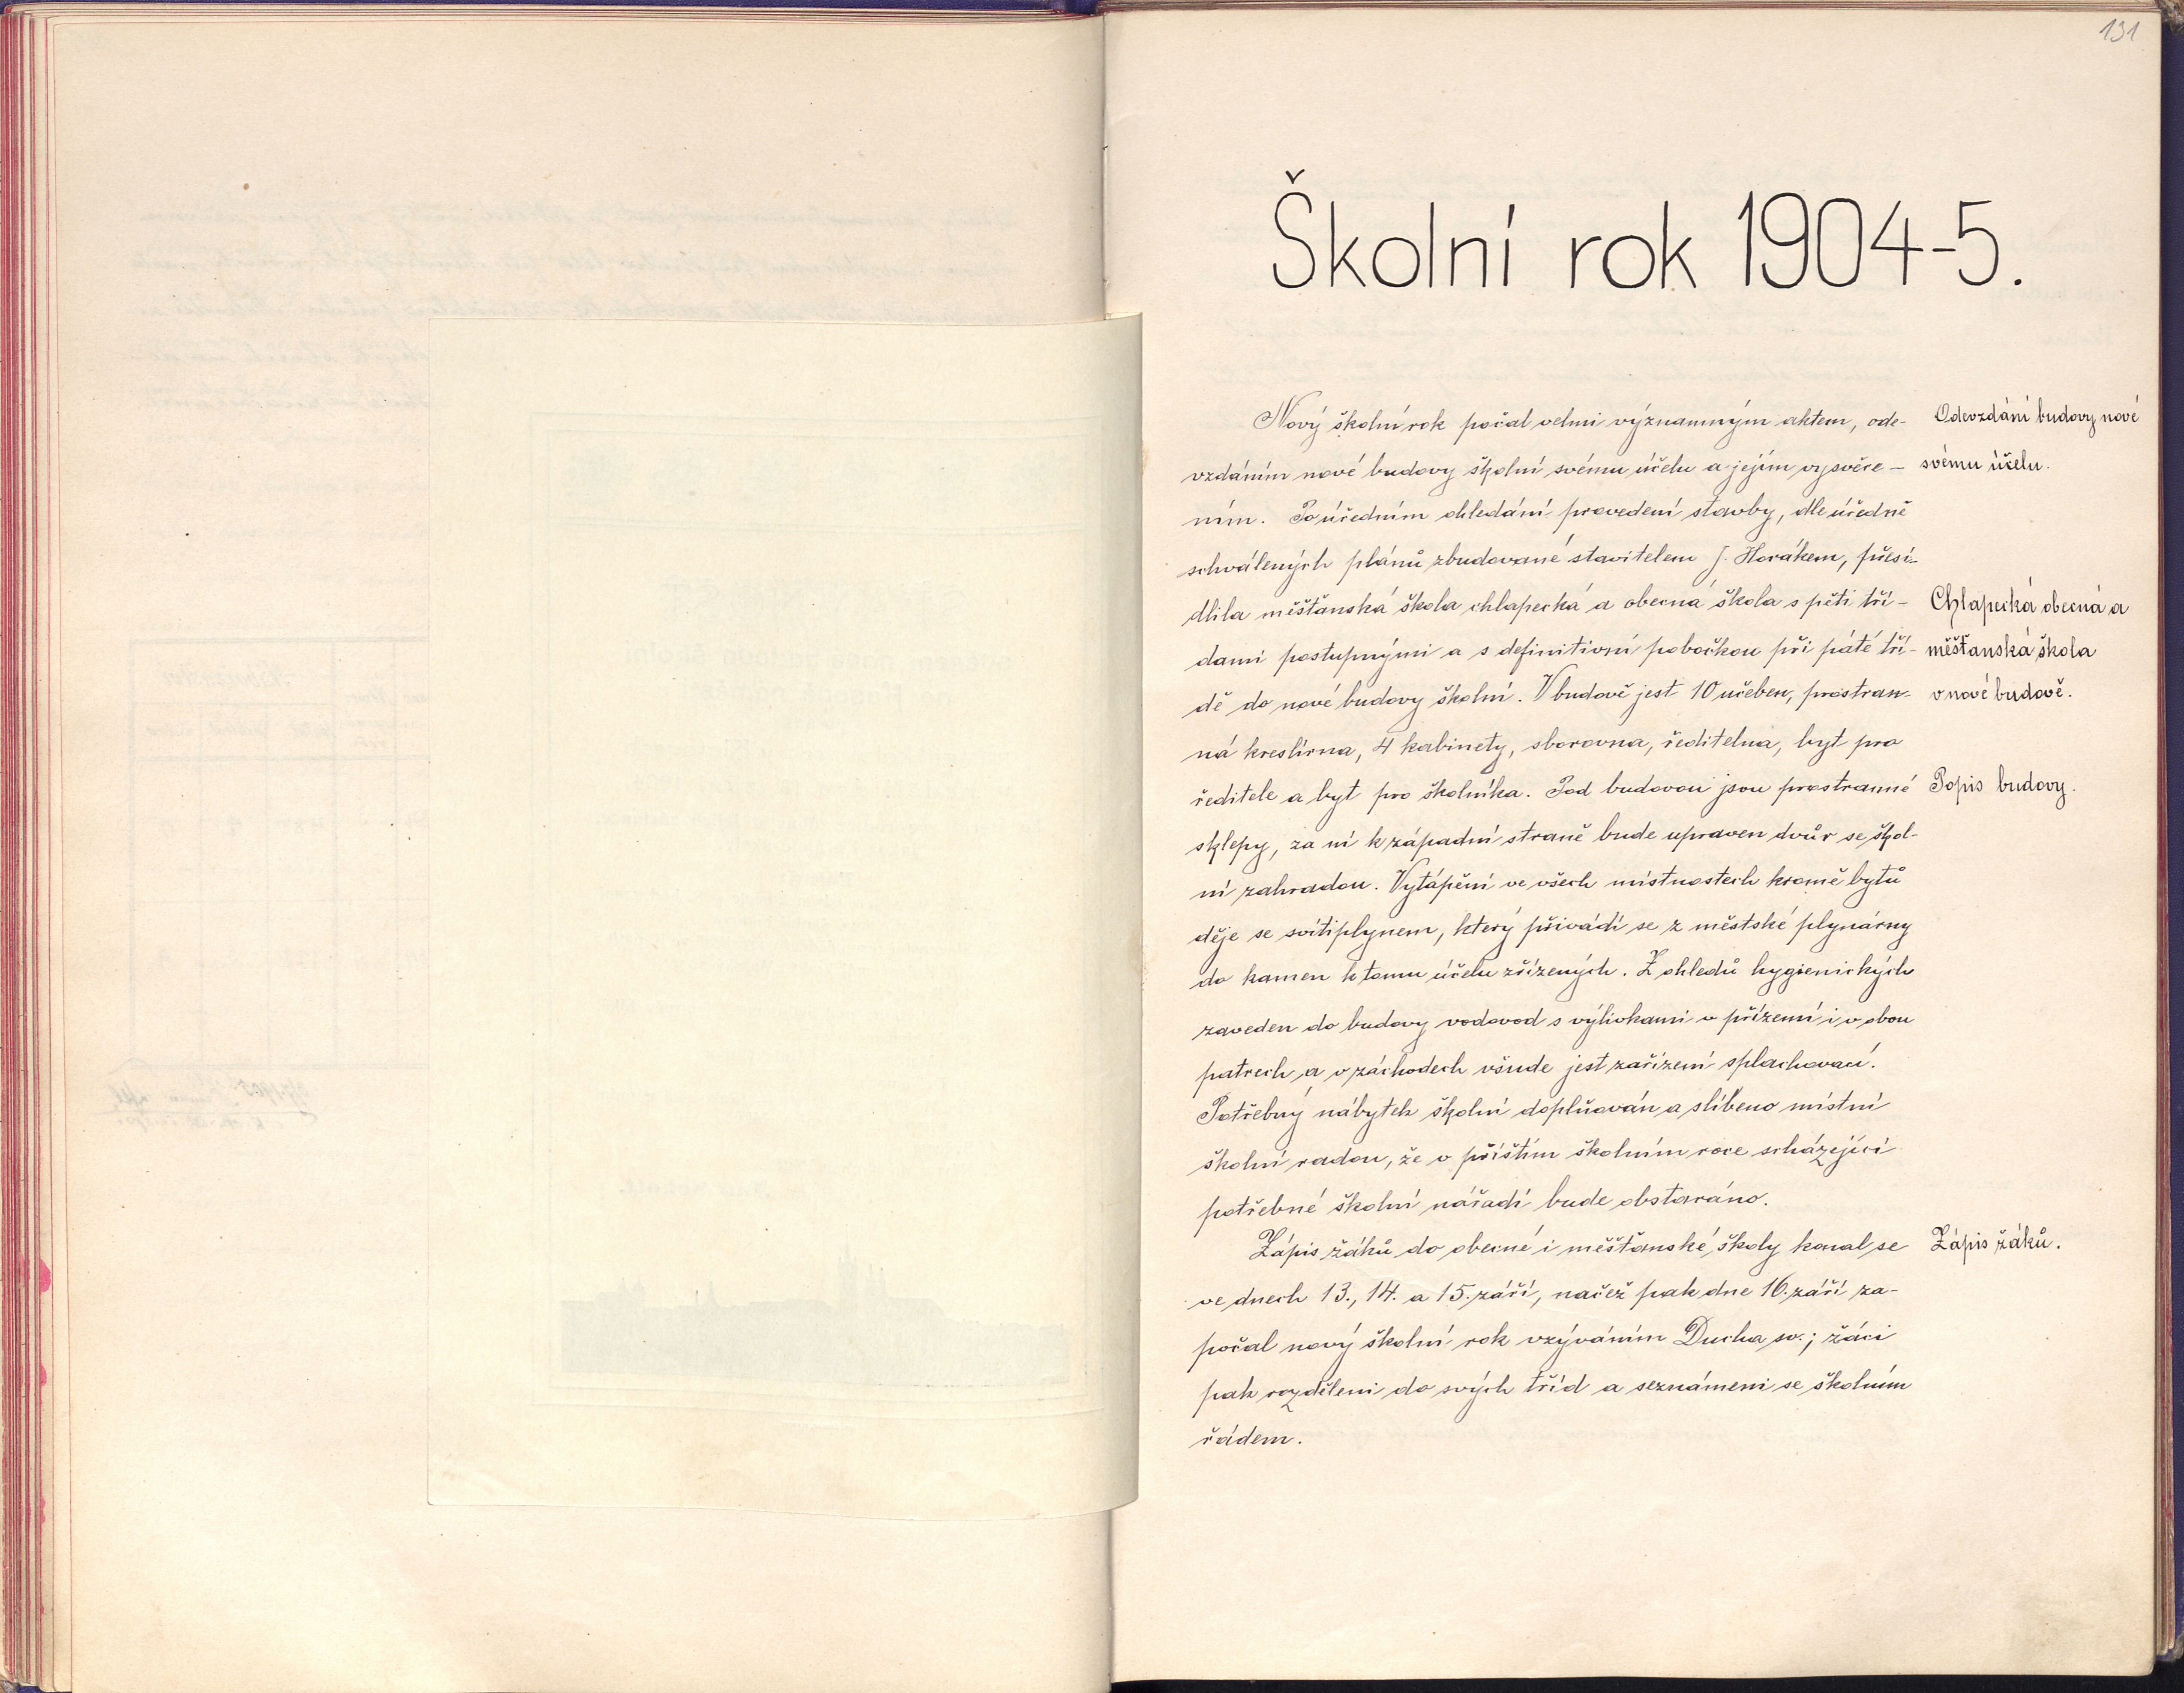 131
Školní rok 1904-5.
Nový školní rok počal velmi významným aktem, ode-
vzdáním nové budovy školní svému účelu a jejím vysvěce-
ním. Po úředním ohledání provedení stavby, dle úředně
schválených plánů zbudované stavitelem J. Horákem, přesí-
dlila měšťanská škola chlapecká a obecná škola s pěti tří-
dami postupnými a s definitivní pobočkou při páté tří-
dě do nové budovy školní. V budově jest 10 učeben, prostran-
ná kreslírna, 4 kabinety, sborovna, ředitelna, byt pro
ředitele a byt pro školníka. Pod budovou jsou prostranné
sklepy, za ní k západní straně bude upraven dvůr se škol-
ní zahradou. Vytápění ve všech místnostech kromě bytů
děje se svítiplynem, který přivádí se z městské plynárny
do kamen k tomu účelu zřízených. Z ohledů hygienických
zaveden do budovy vodovod s výlivkami v přízemí i v obou
patrech a v záchodech všude jest zařízení splachovací.
Potřebný nábytek školní doplňován a slíbeno místní
školní radou, že v příštím školním roce scházející
potřebné školní nářadí bude obstaráno.
Zápis žáků do obecné i měšťanské školy konal se
ve dnech 13., 14. a 15. září, načež pak dne 16. září za-
počal nový školní rok vzýváním Ducha sv.; žáci
pak rozděleni do svých tříd a seznámeni se školním
řádem.
Odevzdání budovy nové
svému účelu.
Chlapecká obecná a
měšťanská škola
v nové budově.
Popis budovy.
Zápis žáků.